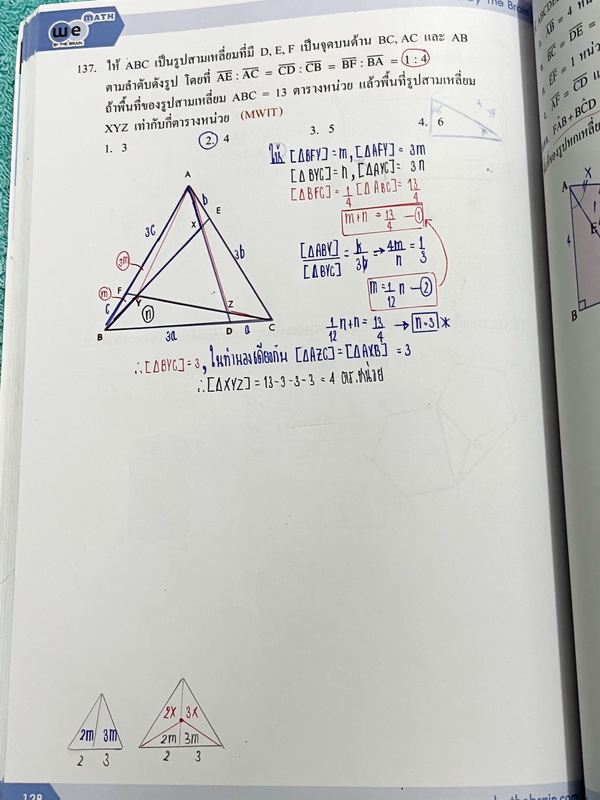 By The Brain
we MATH
BY THE BRAIN
137. ให้ ABC เป็นรูปสามเหลี่ยมที่มี D, E, F เป็นจุดบนด้าน BC, AC และ AB
ตามลำดับดังรูป โดยที่ AE : AC = CD : CB = BF : BA = 1 : 4
ถ้าพื้นที่ของรูปสามเหลี่ยม ABC = 13 ตารางหน่วย แล้วพื้นที่รูปสามเหลี่ยม
XYZ เท่ากับกี่ตารางหน่วย (MWIT)
1. 3
2. 4
3. 5
4. 6
ให้ [△BFY] = m, [△AFY] = 3m
[△BYC] = n, [△AYC] = 3n
[△BFC] = 1/4 [△ABC] = 13/4
m+n = 13/4 — ①
[△ABY]/[△BYC] = b/3b → 4m/n = 1/3
m = 1/12 n — ②
1/12 n + n = 13/4 → n = 3 *
∴ [△BYC] = 3, ในทำนองเดียวกัน [△AZC] = [△AXB] = 3
∴ [△XYZ] = 13-3-3-3 = 4 ตร.หน่วย
A
b
E
X
3c
3b
3m
F
m
Y
n
Z
c
B
3a
D
a
C
2m 3m
2 3
2x 3x
2m 3m
2 3
128